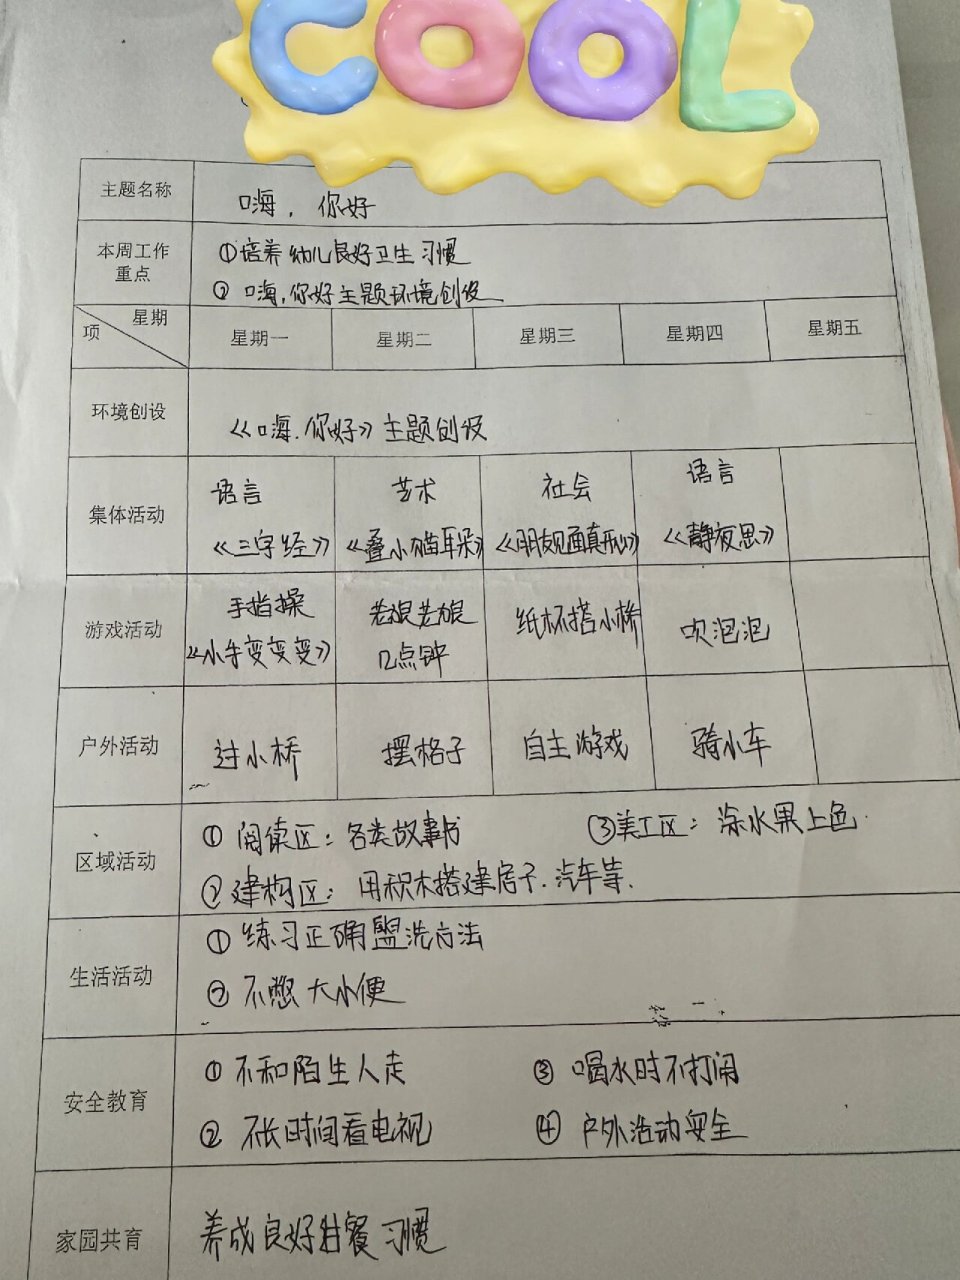 COOL
主题名称 嗨,你好
本周工作
重点
①培养幼儿良好卫生习惯
②嗨,你好主题环境创设
星期
项
星期一 星期二 星期三 星期四 星期五
环境创设 《嗨.你好》主题创设
集体活动
语言 艺术 社会 语言
《三字经》 《叠小猫耳朵》 《朋友见面真开心》 《静夜思》
游戏活动
手指操 老狼老狼 纸杯搭小桥 吹泡泡
《小手变变变》 几点钟
户外活动 过小桥 摆格子 自主游戏 骑小车
区域活动
①阅读区:各类故事书 ③美工区:涂水果上色
②建构区:用积木搭建房子.汽车等.
生活活动
①练习正确盥洗方法
②不憋大小便
安全教育
①不和陌生人走 ③喝水时不打闹
②不长时间看电视 ④户外活动安全
家园共育 养成良好进餐习惯